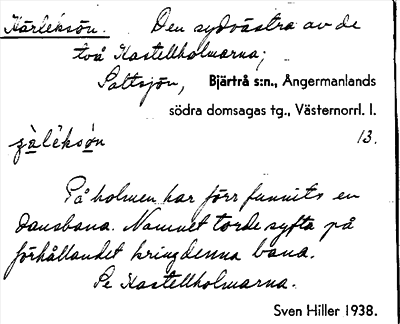 Kärleksön. Den sydvästra av de
två Kastellholmarna;
Saltsjön, Bjärtrå s:n., Ångermanlands
södra domsagas tg., Västernorrl. l.
13.
På holmen har förr funnits en
dansbana. Namnet torde syfta på
förhållandet kring denna bana.
Se Kastellholmarna.
Sven Hiller 1938.